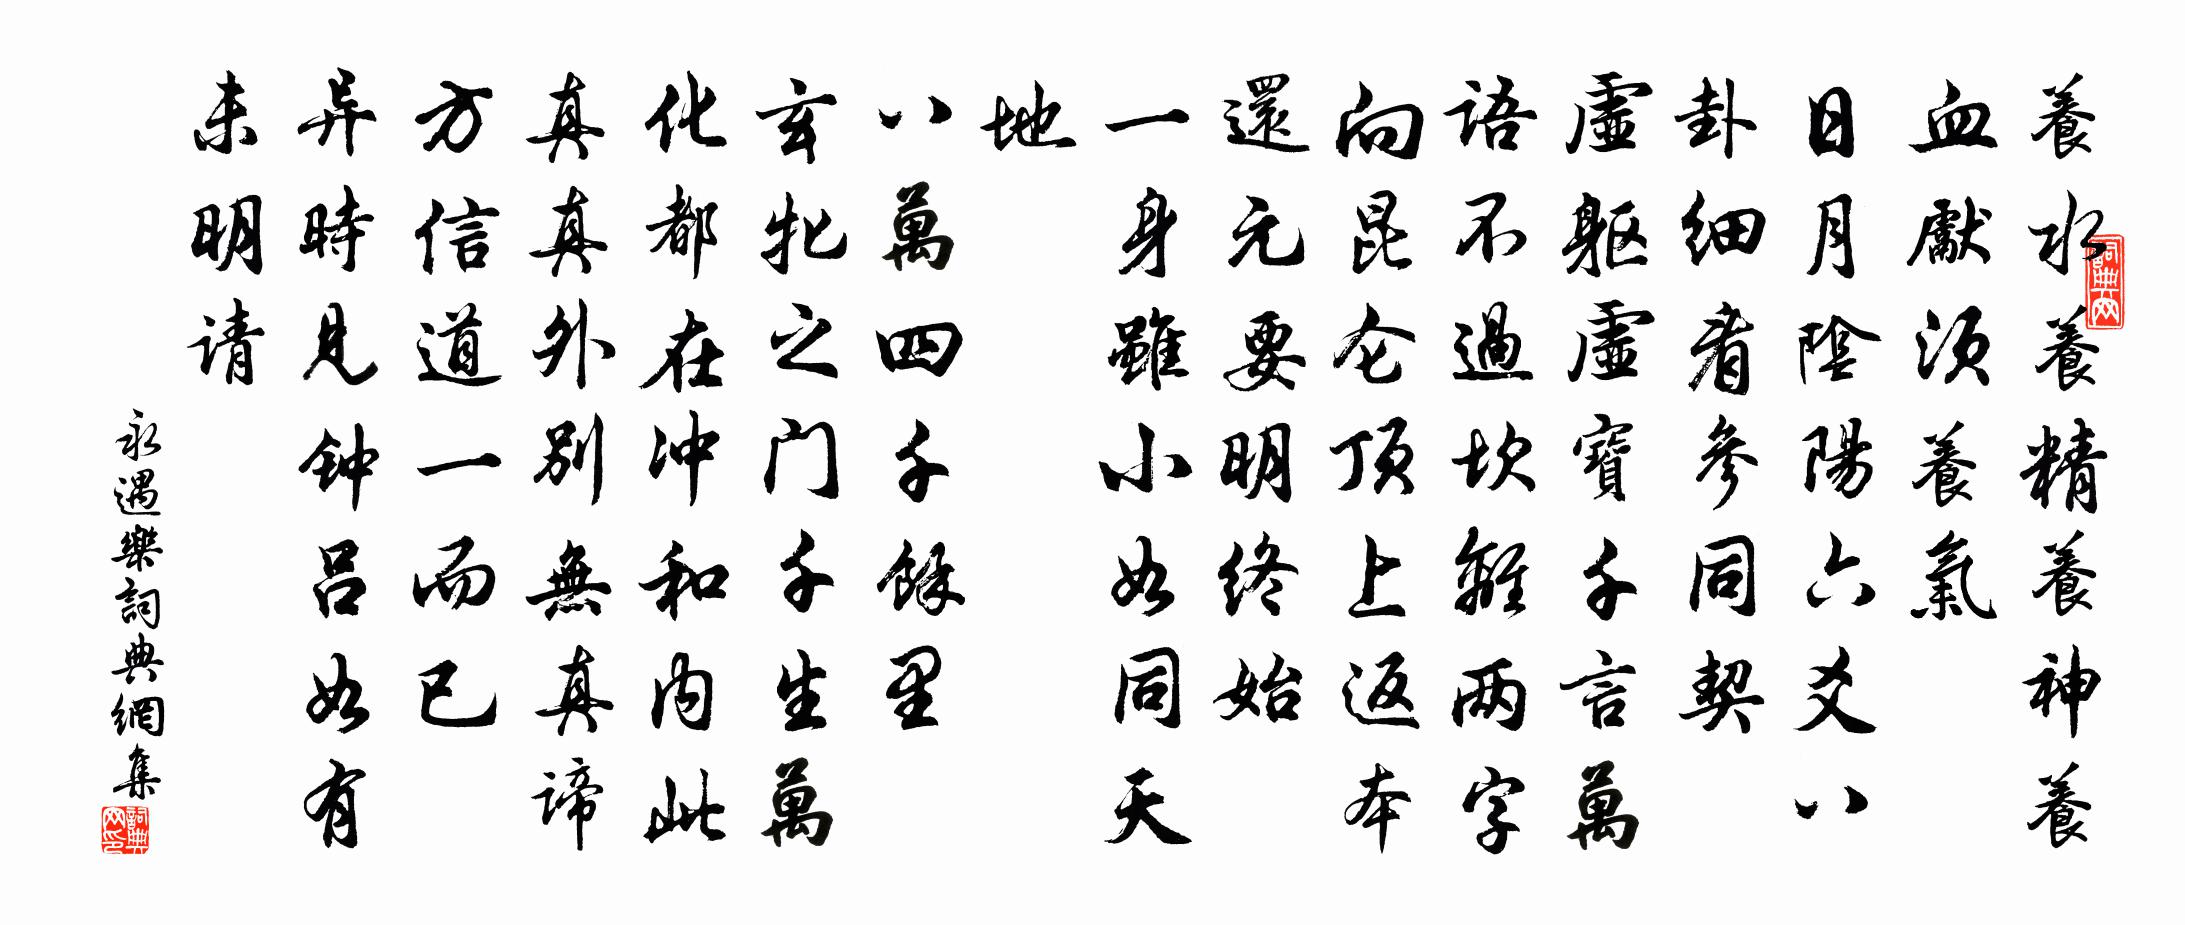 養水養精養神養
血獻须養氣
日月陰陽六爻八
卦細看參同契
虛軀虛寶千言萬
語不過坎離两字
向昆仑顶上返本
還元要明终始
一身雖小如同天
地
八萬四千餘里
玄牝之门千生萬
化都在冲和内此
真真外别無真諦
方信道一而已
异時見钟吕如有
未明请
永遇樂詞典網集
詞典网
詞典网印